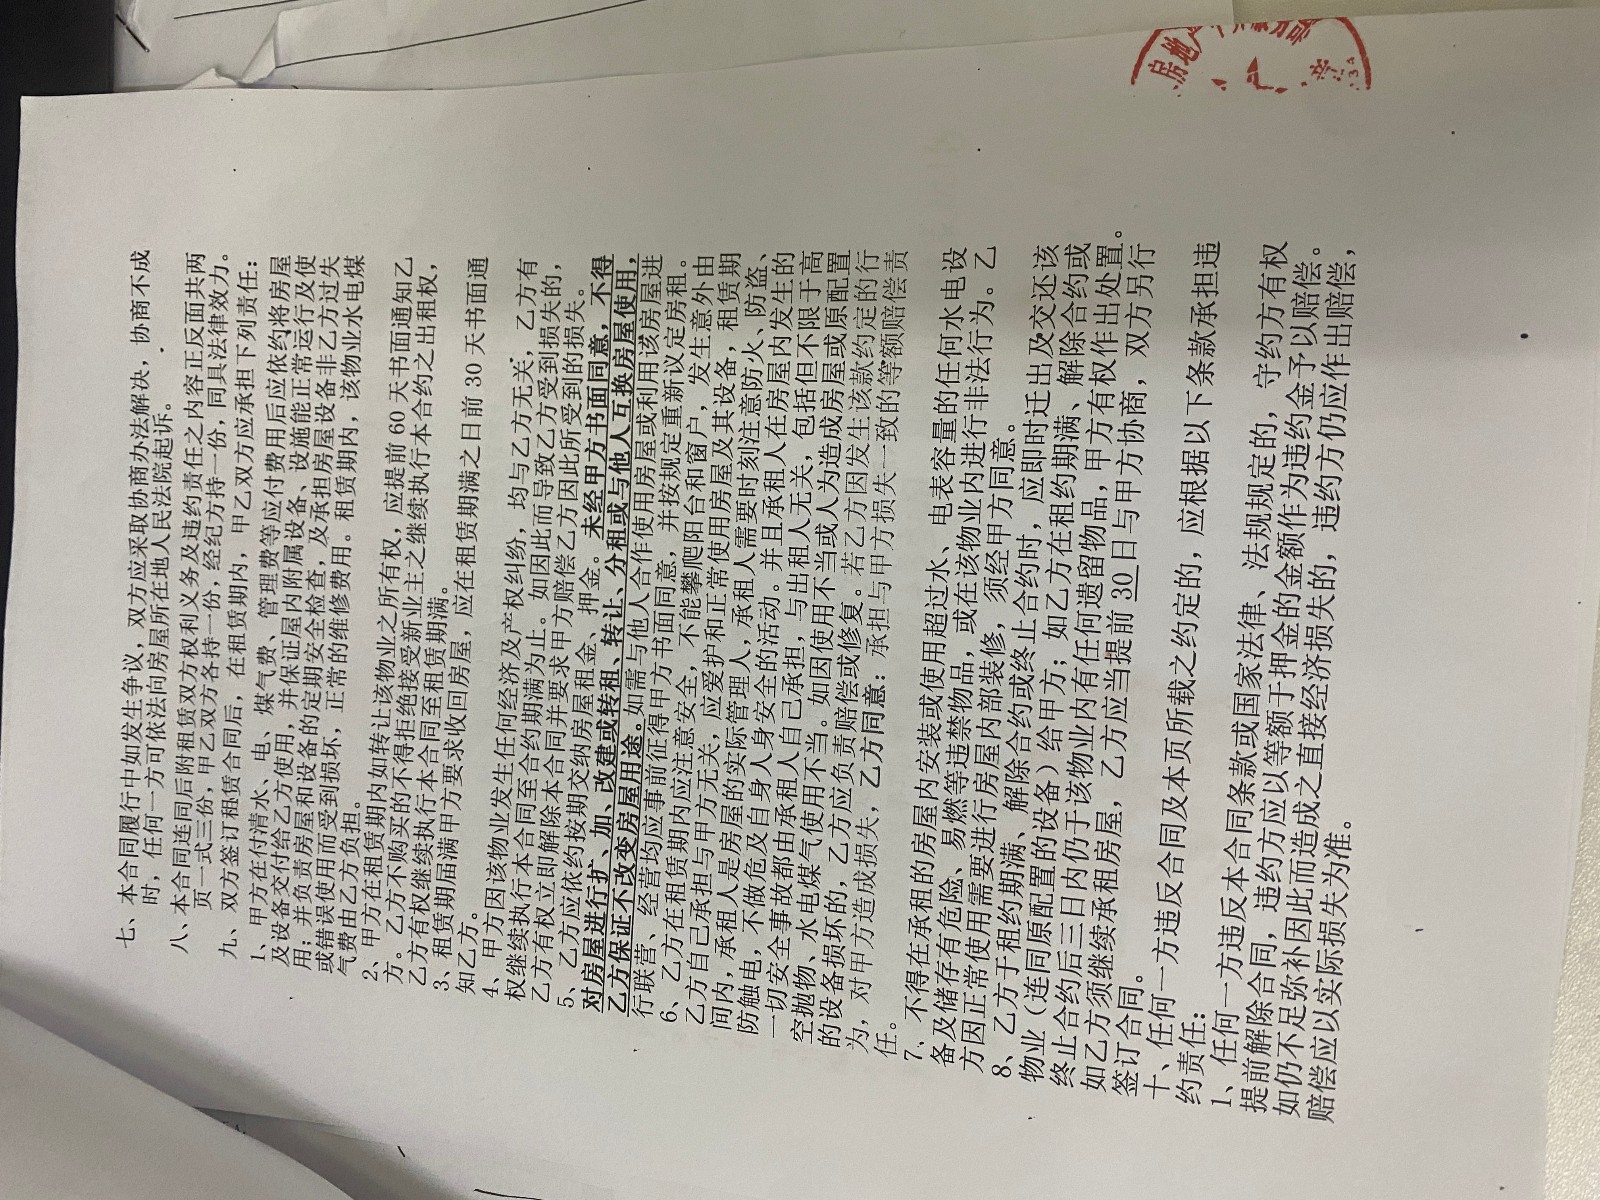 七、本合同履行中如发生争议，双方应采取协商办法解决，协商不成
时，任何一方可依法向房屋所在地人民法院起诉。
八、本合同连同后附租赁双方权利义务及违约责任之内容正反面共两
页一式三份，甲乙双方各持一份，经纪方持一份，同具法律效力。
九、双方签订租赁合同后，在租赁期内，甲乙双方应承担下列责任：
1、甲方在付清水、电、煤气费、管理费等应付费用后应依约将房屋
及设备交付给乙方使用，并保证屋内附属设备、设施能正常运行及使
用；并负责房屋和设备的定期安全检查，及承担房屋设备非乙方过失
或错误使用而受到损坏，正常的维修费用。租赁期内，该物业水电煤
气费由乙方负担。
2、甲方在租赁期内如转让该物业之所有权，应提前 60 天书面通知乙
方。乙方不购买的不得拒绝接受新业主之继续执行本合约之出租权，
乙方有权继续执行本合同至租赁期满。
3、租赁期届满甲方要求收回房屋，应在租赁期满之日前 30 天书面通
知乙方。
4、甲方因该物业发生任何经济及产权纠纷，均与乙方无关，乙方有
权继续执行本合同至合约期满为止。如因此而导致乙方受到损失的，
乙方有权立即解除本合同并要求甲方赔偿乙方因此所受到的损失。
5、乙方应依约按期交纳房屋租金、押金。未经甲方书面同意，不得
对房屋进行扩、加、改建或转租、转让、分租或与他人互换房屋使用，
乙方保证不改变房屋用途。如需与他人合作使用房屋或利用该房屋进
行联营、经营均应事前征得甲方书面同意，并按规定重新议定房租。
6、乙方在租赁期内应注意安全，不能攀爬阳台和窗户，发生意外由
乙方自己承担与甲方无关，应爱护和正常使用房屋及其设备，租赁期
间内，承租人是房屋的实际管理人，承租人需要时刻注意防火、防盗、
防触电，不做危及自身人身安全的活动。并且承租人在房屋内发生的
一切安全事故都由承租人自己承担，与出租人无关，包括但不限于高
空抛物、水电煤气使用不当。如因使用不当或人为造成房屋或原配置
的设备损坏的，乙方应负责赔偿或修复。若乙方因发生该款约定的行
为，对甲方造成损失，乙方同意：承担与甲方损失一致的等额赔偿责
任。
7、不得在承租的房屋内安装或使用超过水、电表容量的任何水电设
备及储存有危险、易燃等违禁物品，或在该物业内进行非法行为。乙
方因正常使用需要进行房屋内部装修，须经甲方同意。
8、乙方于租约期满、解除合约或终止合约时，应即时迁出及交还该
物业（连同原配置的设备）给甲方；如乙方在租约期满、解除合约或
终止合约后三日内仍于该物业内有任何遗留物品，甲方有权作出处置。
如乙方须继续承租房屋，乙方应当提前 30 日与甲方协商，双方另行
签订合同。
十、任何一方违反合同及本页所载之约定的，应根据以下条款承担违
约责任：
1、任何一方违反本合同条款或国家法律、法规规定的，守约方有权
提前解除合同，违约方应以等额于押金的金额作为违约金予以赔偿。
如仍不足弥补因此而造成之直接经济损失的，违约方仍应作出赔偿，
赔偿应以实际损失为准。
房地